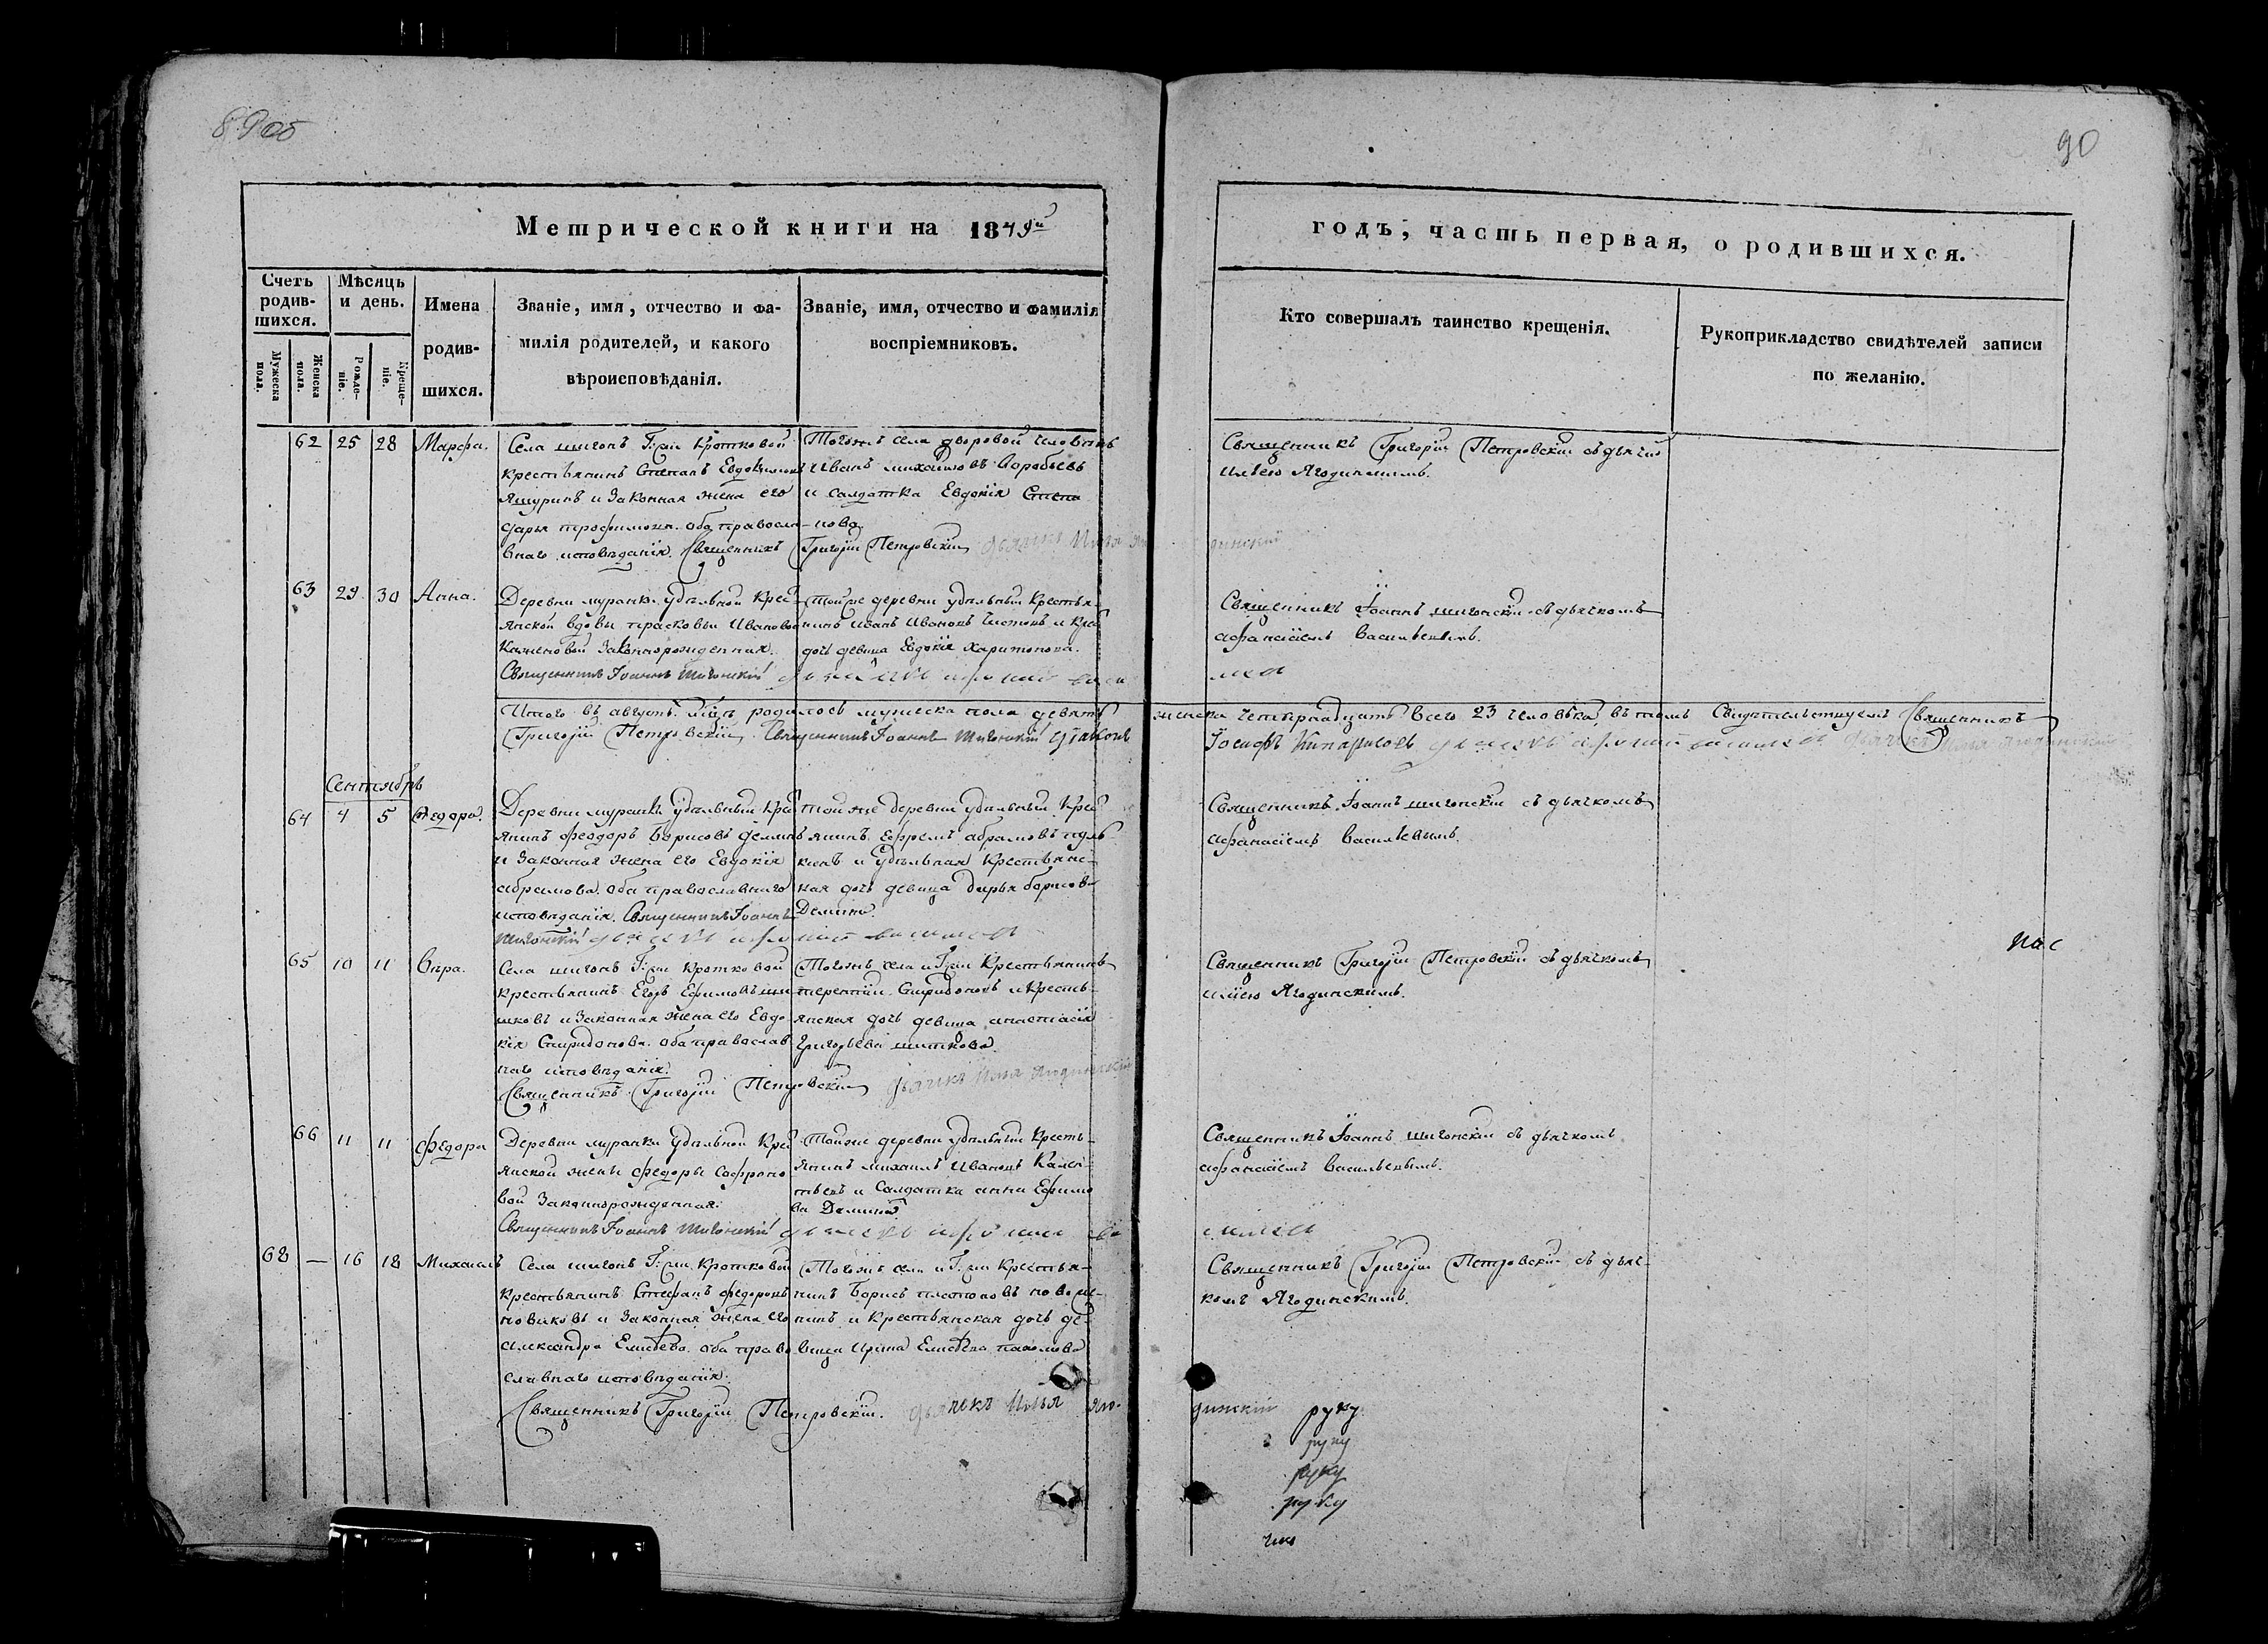 89об
90
Метрической книги на 1849й
годъ, часть первая, о родившихся.
Счетъ родив-
шихся.
Мужеска пола.
Женска пола.
Мѣсяцъ и день.
Рожде-
ніе.
Креще-
ніе.
Имена
родив-
шихся.
Званіе, имя, отчество и фа-
милія родителей, и какого
вѣроисповѣданія.
Званіе, имя, отчество и фамилія
воспріемниковъ.
Кто совершалъ таинство крещенія.
Рукоприкладство свидѣтелей записи
по желанію.
62 25 28 Марфа.
Села шигонъ Г:жи Кротковой
крестьянинъ Степанъ Евдокимовъ
Яшуринъ и Законная жена его
дарья трофимова. оба правосла-
внаго исповѣданія. Священникъ Григорій Петровскій дьячкъ Илья Ягодинскій
Тогожъ села дворовой человѣкъ
Иванъ михайловъ Воробьевъ
и салдатка Евдокія Степа
нова
Священникъ Григорій Петровскій съ дьячко
Ильею Ягодинскимъ.
63 29 30 Анна.
Деревни муранки удѣльной Крес
янской вдовы прасковьи Ивановой
Законнорожденная.
Священникъ Іоаннъ Шигонскій
тойже деревни удѣльный крестья
нинъ Иванъ Ивановъ и Крес
дочь девица Евдокія Харитонова.
Священникъ Іоаннъ шигонскій съ дьячкомъ
афанасіемъ Васильевымъ.
Итого въ августѣ мцѣ родилось мужеска пола девять женска четырнадцать Всего 23 человѣка, въ томъ Свидѣтельствуемъ Священникъ
Григорій Петровскій Священникъ Іоаннъ Шигонскій Діаконъ Іосифъ Кипарисовъ
Сентябрь
64 4 5 Федора.
Деревни муранки удѣльный Крес
янинъ феодоръ Борисовъ деминъ
и Законная жена его Евдокія
абрамова. оба православнаго
исповѣданія. Священникъ Іоаннъ
Шигонскій
той же деревни удѣльный Крес
янинъ Ефремъ абрамовъ
и удѣльная Крестьянс-
кая дочь девица дарья борисова
Демина.
Священникъ Іоаннъ шигонскій съ дьячкомъ
афанасіемъ Васильевымъ.
65 10 11 Вѣра.
Села шигонъ Г:жи Кротковой
крестьянинъ Егоръ Ефимовъ ши-
шковъ и Законная жена его Евдо-
кія Спиридонова. оба православ
наго исповѣданія.
Священникъ Григорій Петровскій дьячкъ Илья Ягодинскій
Тогожъ села и Г:жи Крестьянинъ
терентій Спиридоновъ и Кресть-
янская дочь девица анастасія
Григорьева шишкова.
Священникъ Григорій Петровскій съ дьячкомъ
ильею Ягодинскимъ.
66 11 11 федора
Деревни муранки удѣльной Крес
янской жены федоры Софроно
вой Законнорожденная.
Священникъ Іоаннъ Шигонскій
Тойже деревни удѣльный Кресть-
янинъ михаилъ Ивановъ
и Салдатка анна Ефимо
ва Демина
Священникъ Іоаннъ шигонскій съ дьячкомъ
афанасіемъ Васильевымъ.
68 — 16 18 Михаилъ
Села шигонъ Г:жи Кротковой
крестьянинъ Стефанъ федоровъ
новиковъ и Законная жена его
Александра Елисѣева. оба право
славнаго исповѣданія.
Священникъ Григорій Петровскій. дьячекъ Илья Ягодинскій руку
Тогожъ села и Г:жи Крестья-
нинъ Борисъ платоновъ
и Крестьянская дочь де-
вица Ирина Елисѣева
Священникъ Григорій Петровскій съ дьяч-
комъ Ягодинскимъ.
руку
руку
руку